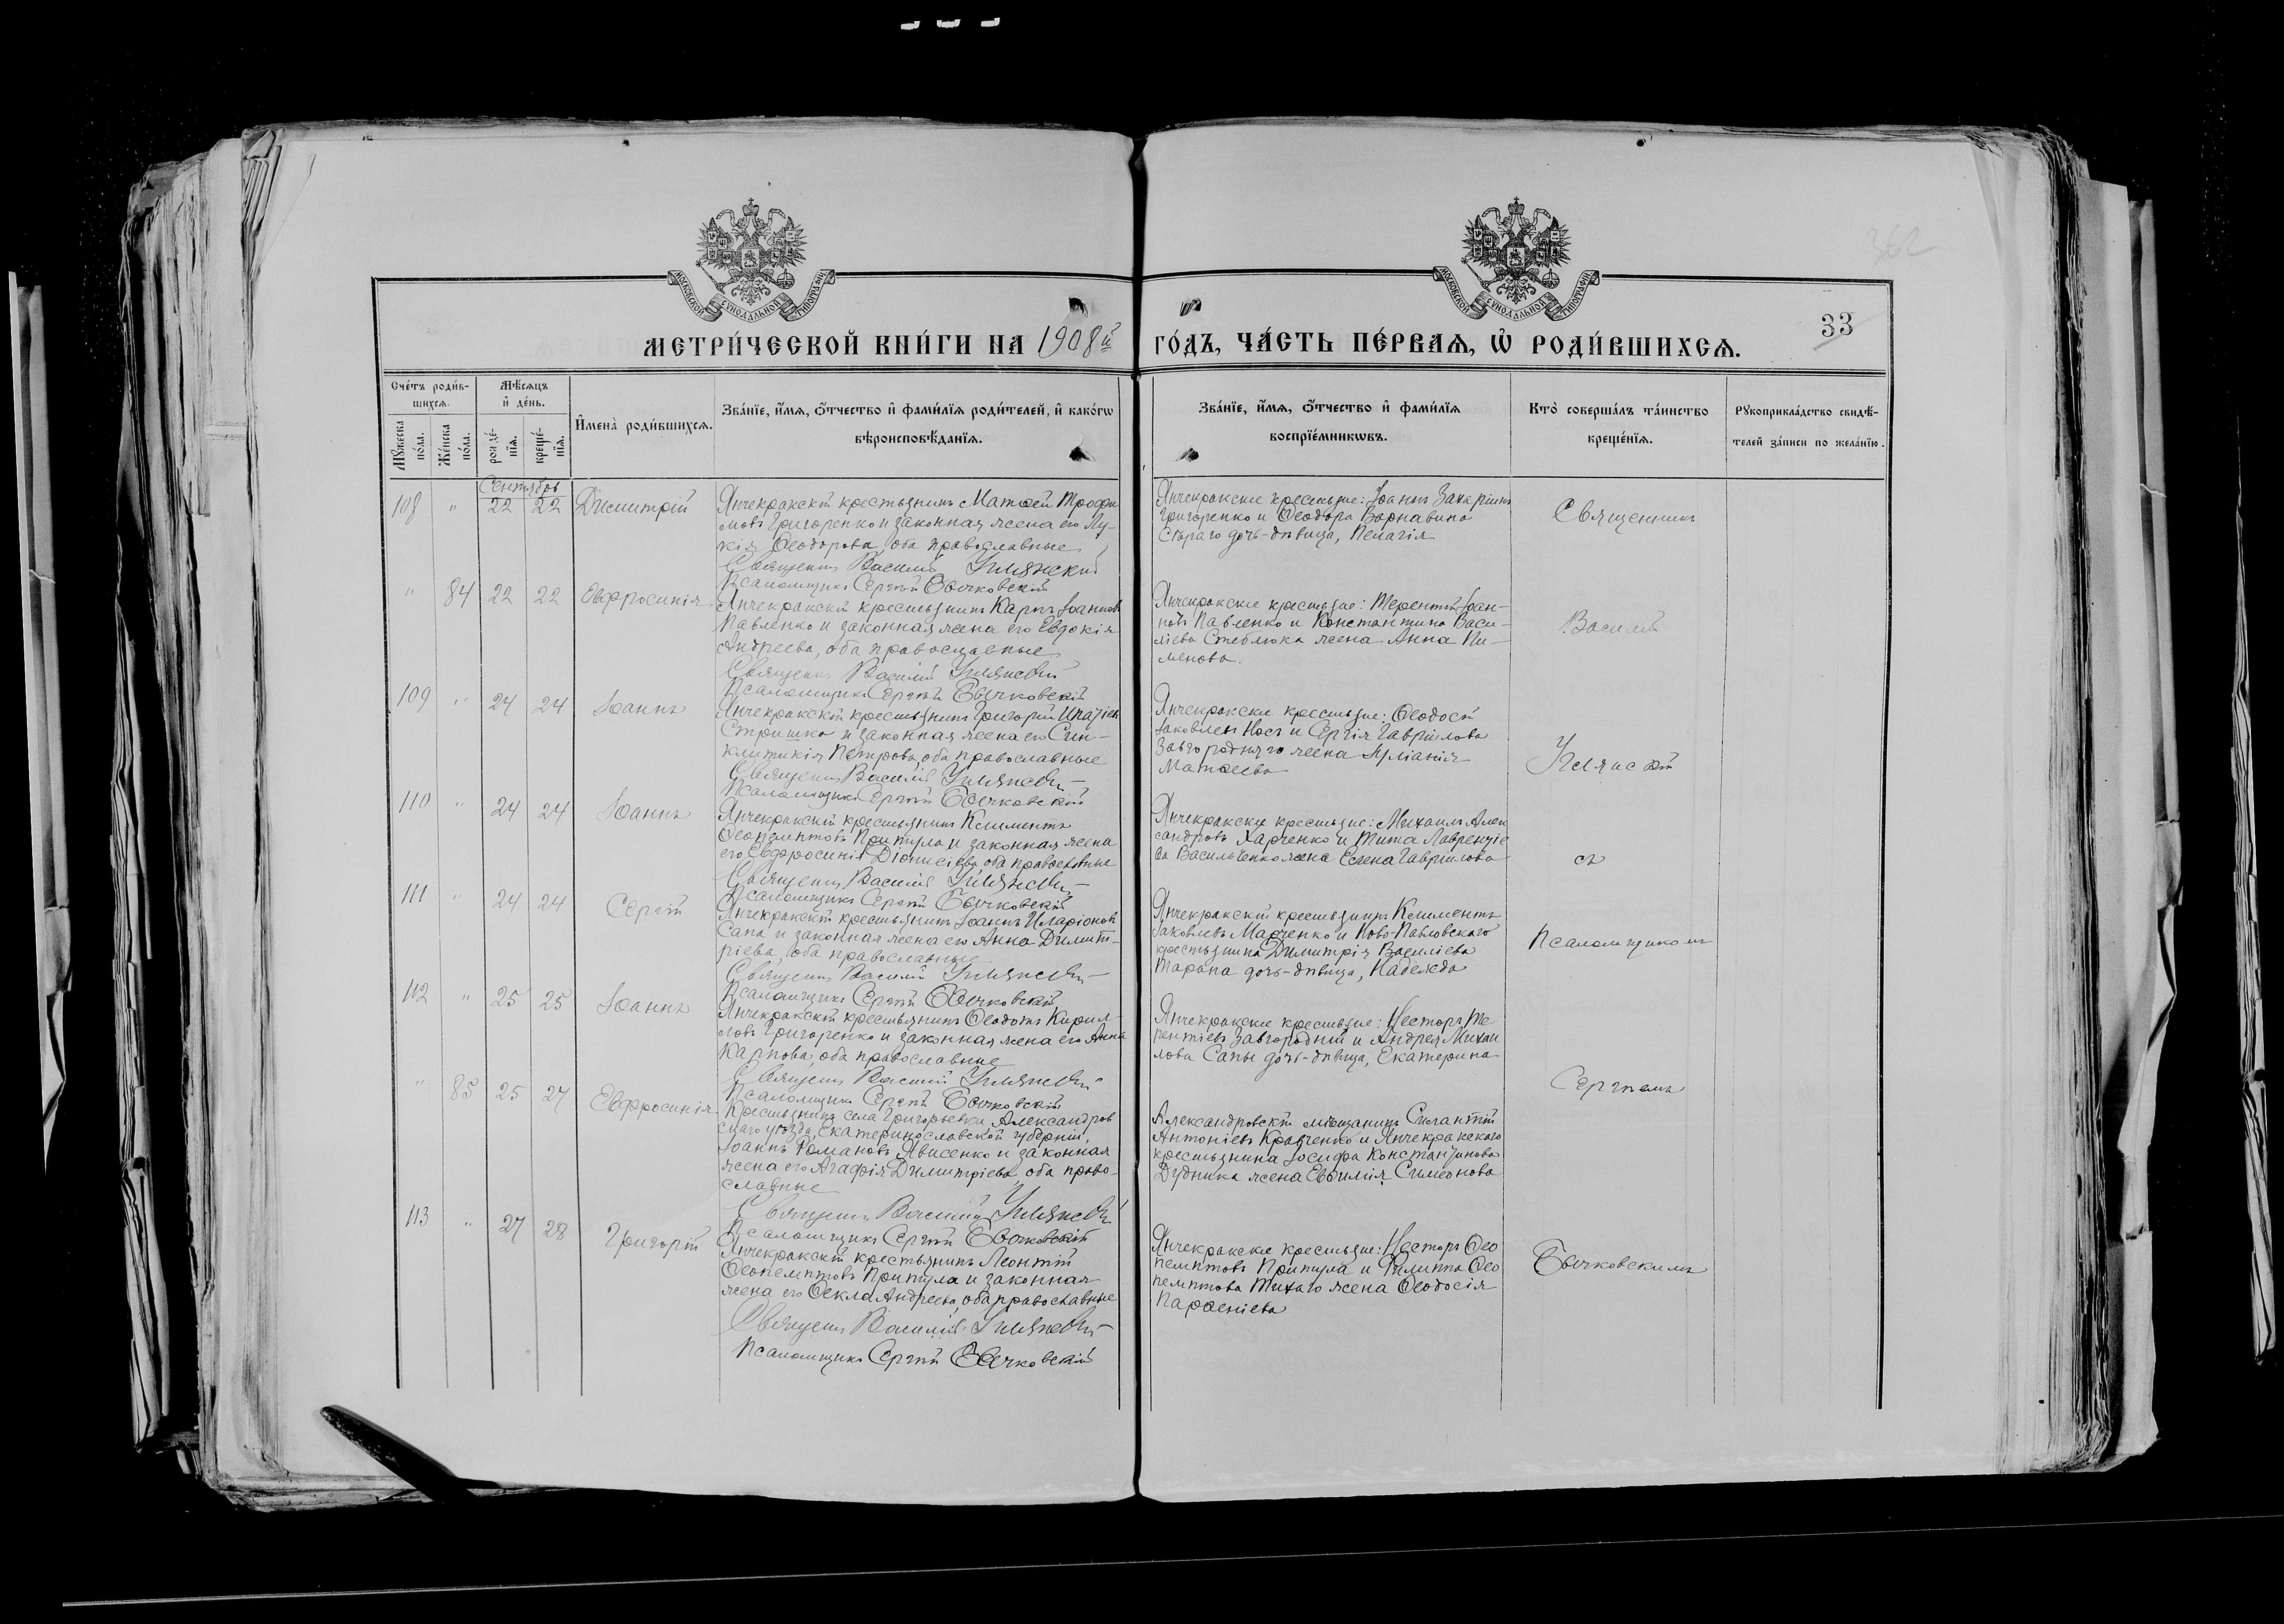 362
МОСКОВСКОЙ СѴНОДАЛЬНОЙ ТИПОГРАФІИ
МОСКОВСКОЙ СѴНОДАЛЬНОЙ ТИПОГРАФІИ
33
МЕТРИ́ЧЕСКОЙ КНИ́ГИ НА 1908й ГО́ДЪ, ЧА́СТЬ ПЕ́РВАѦ, Ѡ҆ РОДИ́ВШИХСѦ.
Сче́тъ роди́вшихсѧ.
Мꙋ́жеска по́ла.
Же́нска по́ла.
Мѣ́сѧцъ и҆ де́нь.
рожде́нїѧ.
креще́нїѧ.
И҆мена̀ роди́вшихсѧ.
Зва́нїе, и҆́мѧ, ѻ҆́тчество и҆ фами́лїѧ роди́телей, и҆ како́гѡ
вѣроисповѣ́данїѧ.
Зва́нїе, и҆́мѧ, ѻ҆́тчество и҆ фами́лїѧ
воспрїе́мникѡвъ.
Кто̀ соверша́лъ та́инство
креще́нїѧ.
Рꙋкоприкла́дство свидѣ́-
телей за́писи по жела́нїю.
Сентябрь
108 " 22 22 Димитрій
Янчекракскій крестьянинъ Матѳей Трофи
мовъ Григоренко и законная жена его Лу-
кія Ѳеодорова, оба православные
Священникъ Василій
Псаломщикъ Сергій Бычковскій
Янчекракские крестьяне: Іоаннъ Захаріинъ
Григоренко и Ѳеодора Варнавина
Стараго дочь-дѣвица, Пелагія
Священникъ
" 84 22 22 Евфросинія
Янчекракскій крестьянинъ Карпъ Іоанновъ
Павленко и законная жена его Евдокія
Андреева, оба православные
Священникъ Василій
Псаломщикъ Сергій Бычковскій
Янчекракские крестьяне: Терентій Іоан-
новъ Павленко и Константина Васи-
ліева Стеблюка жена Анна Пи-
менова.
Василій
109 " 24 24 Іоаннъ
Янчекракскій крестьянинъ Григорій Ипатіев
Стришко и законная жена его Син-
клитикія Петрова, оба православные
Священникъ Василій
Псаломщикъ Сергій Бычковскій
Янчекракские крестьяне: Ѳеодосій
Іаковлевъ Носъ и Сергія Гавріилова
Завгородняго жена Іуліанія
Матѳеева
110 " 24 24 Іоаннъ
Янчекракскій крестьянинъ Климентъ
Ѳеопемптовъ Притула и законная жена
его Евфросинія Діонисіева, оба православные
Священникъ Василій
Псаломщикъ Сергій Бычковскій
Янчекракские крестьяне: Михаилъ Алек
сандровъ Харченко и Тита Лаврентіе
ва Васильченко жена Елена Гавріилова
съ
111 " 24 24 Сергій
Янчекракскій крестьянинъ Іоаннъ Иларіоновъ
Сапа и законная жена его Анна Димит-
ріева, оба православные
Священникъ Василій
Псаломщикъ Сергій Бычковскій
Янчекракскій крестьянинъ Климентъ
Іаковлевъ Марченко и Ново-Павловскаго
крестьянина Димитрія Василіева
Тарана дочь-дѣвица, Надежда
Псаломщикомъ
112 " 25 25 Іоаннъ
Янчекракскій крестьянинъ Ѳеодотъ Кирил-
ловъ Григоренко и законная жена его Анна
Карпова, оба православные
Священникъ Василій
Псаломщикъ Сергій Бычковскій
Янчекракские крестьяне: Несторъ Те
рентіевъ Завгородній и Андрея Михаи
лова Сапы дочь-дѣвица, Екатерина
Сергіемъ
" 85 25 27 Евфросинія
Крестьянинъ села Григорьевки Александров
скаго уѣзда, Екатеринославской губерніи,
Іоаннъ Романовъ Явисенко и законная
жена его Агафія Димитріева, оба право-
славные
Священникъ Василій
Псаломщикъ Сергій Бычковскій
Александровскій мѣщанинъ Силантій
Антоніевъ Кравченко и Янчекракскаго
крестьянина Іосифа Константинова
Дудника жена Евфимія Симеонова
113 " 27 28 Григорій
Янчекракскій крестьянинъ Леонтій
Ѳеопемптовъ Притула и законная
жена его Ѳекла Андреева, оба православные
Священникъ Василій
Псаломщикъ Сергій Бычковскій
Янчекракские крестьяне: Несторъ Ѳео
пемптовъ Притула и Филиппа Ѳео
пемптова Тихаго жена Ѳеодосія
Парѳеніева
Бычковскимъ